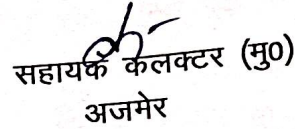 सहायक कलक्टर (मु0)
अजमेर